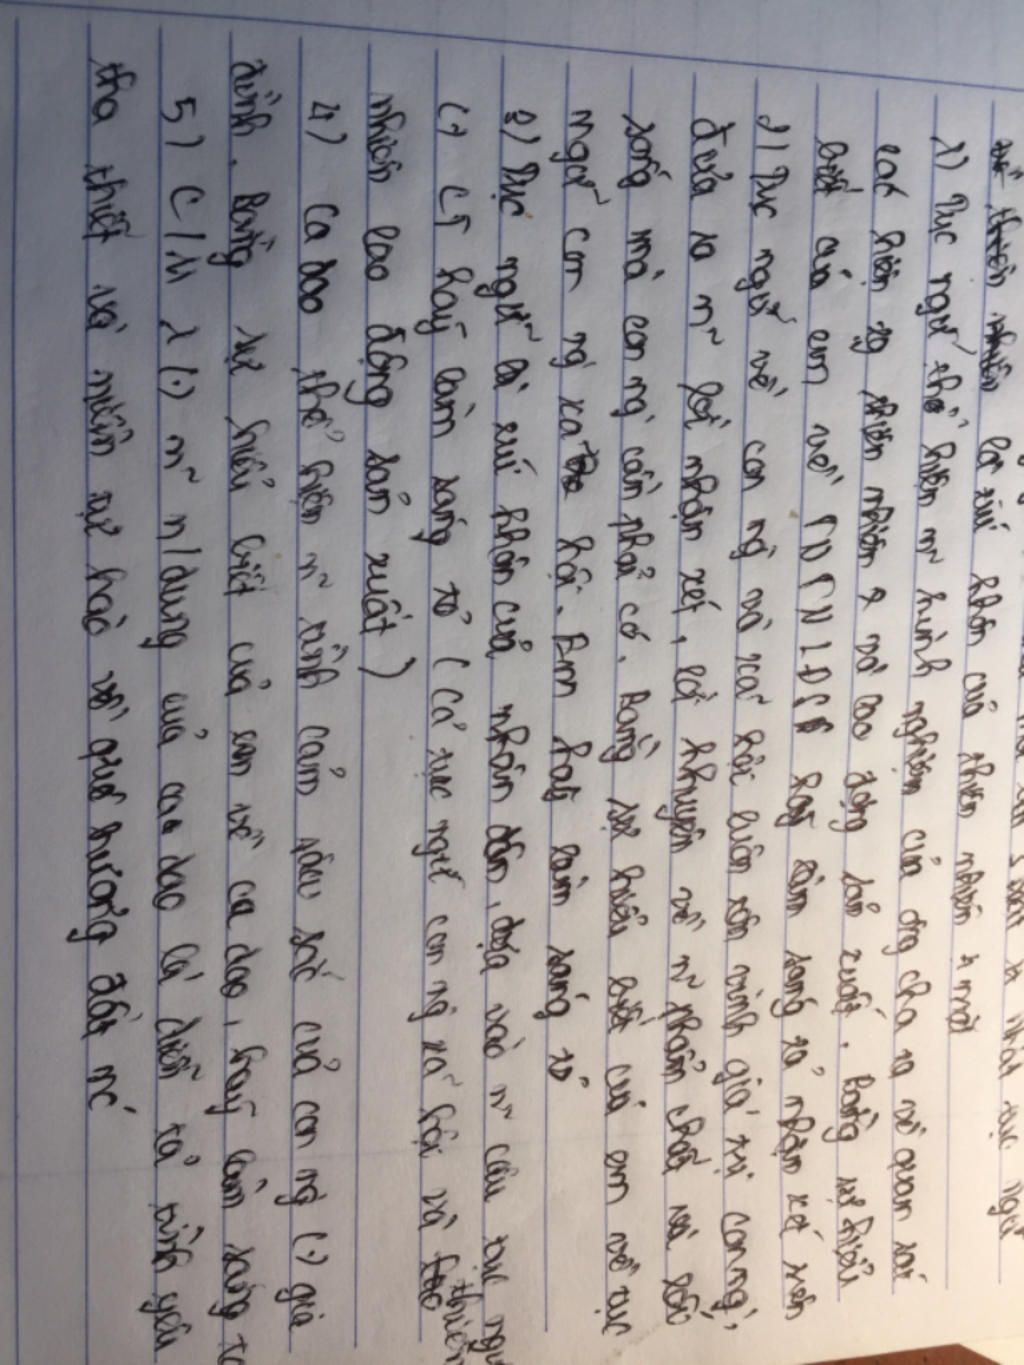 là túi khôn của thiên nhiên & một
1) Tục ngữ thể hiện n~ kinh nghiệm của ông cha ta về quan sát
các hiện tg thiên nhiên & về lao động sản xuất. Bằng sự hiểu
biết của em về hãy làm sáng tỏ nhận xét trên
2) Tục ngữ về con ng và xã hội luôn tôn vinh giá trị con ng,
đưa ra n~ lời nhận xét, lời khuyên về n~ phẩm chất và lối
sống mà con ng cần phải có. Bằng sự hiểu biết của em về tục
ngữ con ng xã hội. Em hãy làm sáng tỏ
3) Tục ngữ là túi khôn của nhân dân, dựa vào n~ câu tục ngữ
(.) CT hãy làm sáng tỏ (cả tục ngữ con ng xã hội và thiên
nhiên lao động sản xuất)
4) Ca dao thể hiện n~ tình cảm sâu sắc của con ng (.) gia
đình. Bằng sự hiểu biết của em về ca dao, hãy làm sáng tỏ
5) C/M 1 (.) n~ n/dung của ca dao là diễn tả tình yêu
tha thiết và niềm tự hào về quê hương đất nc